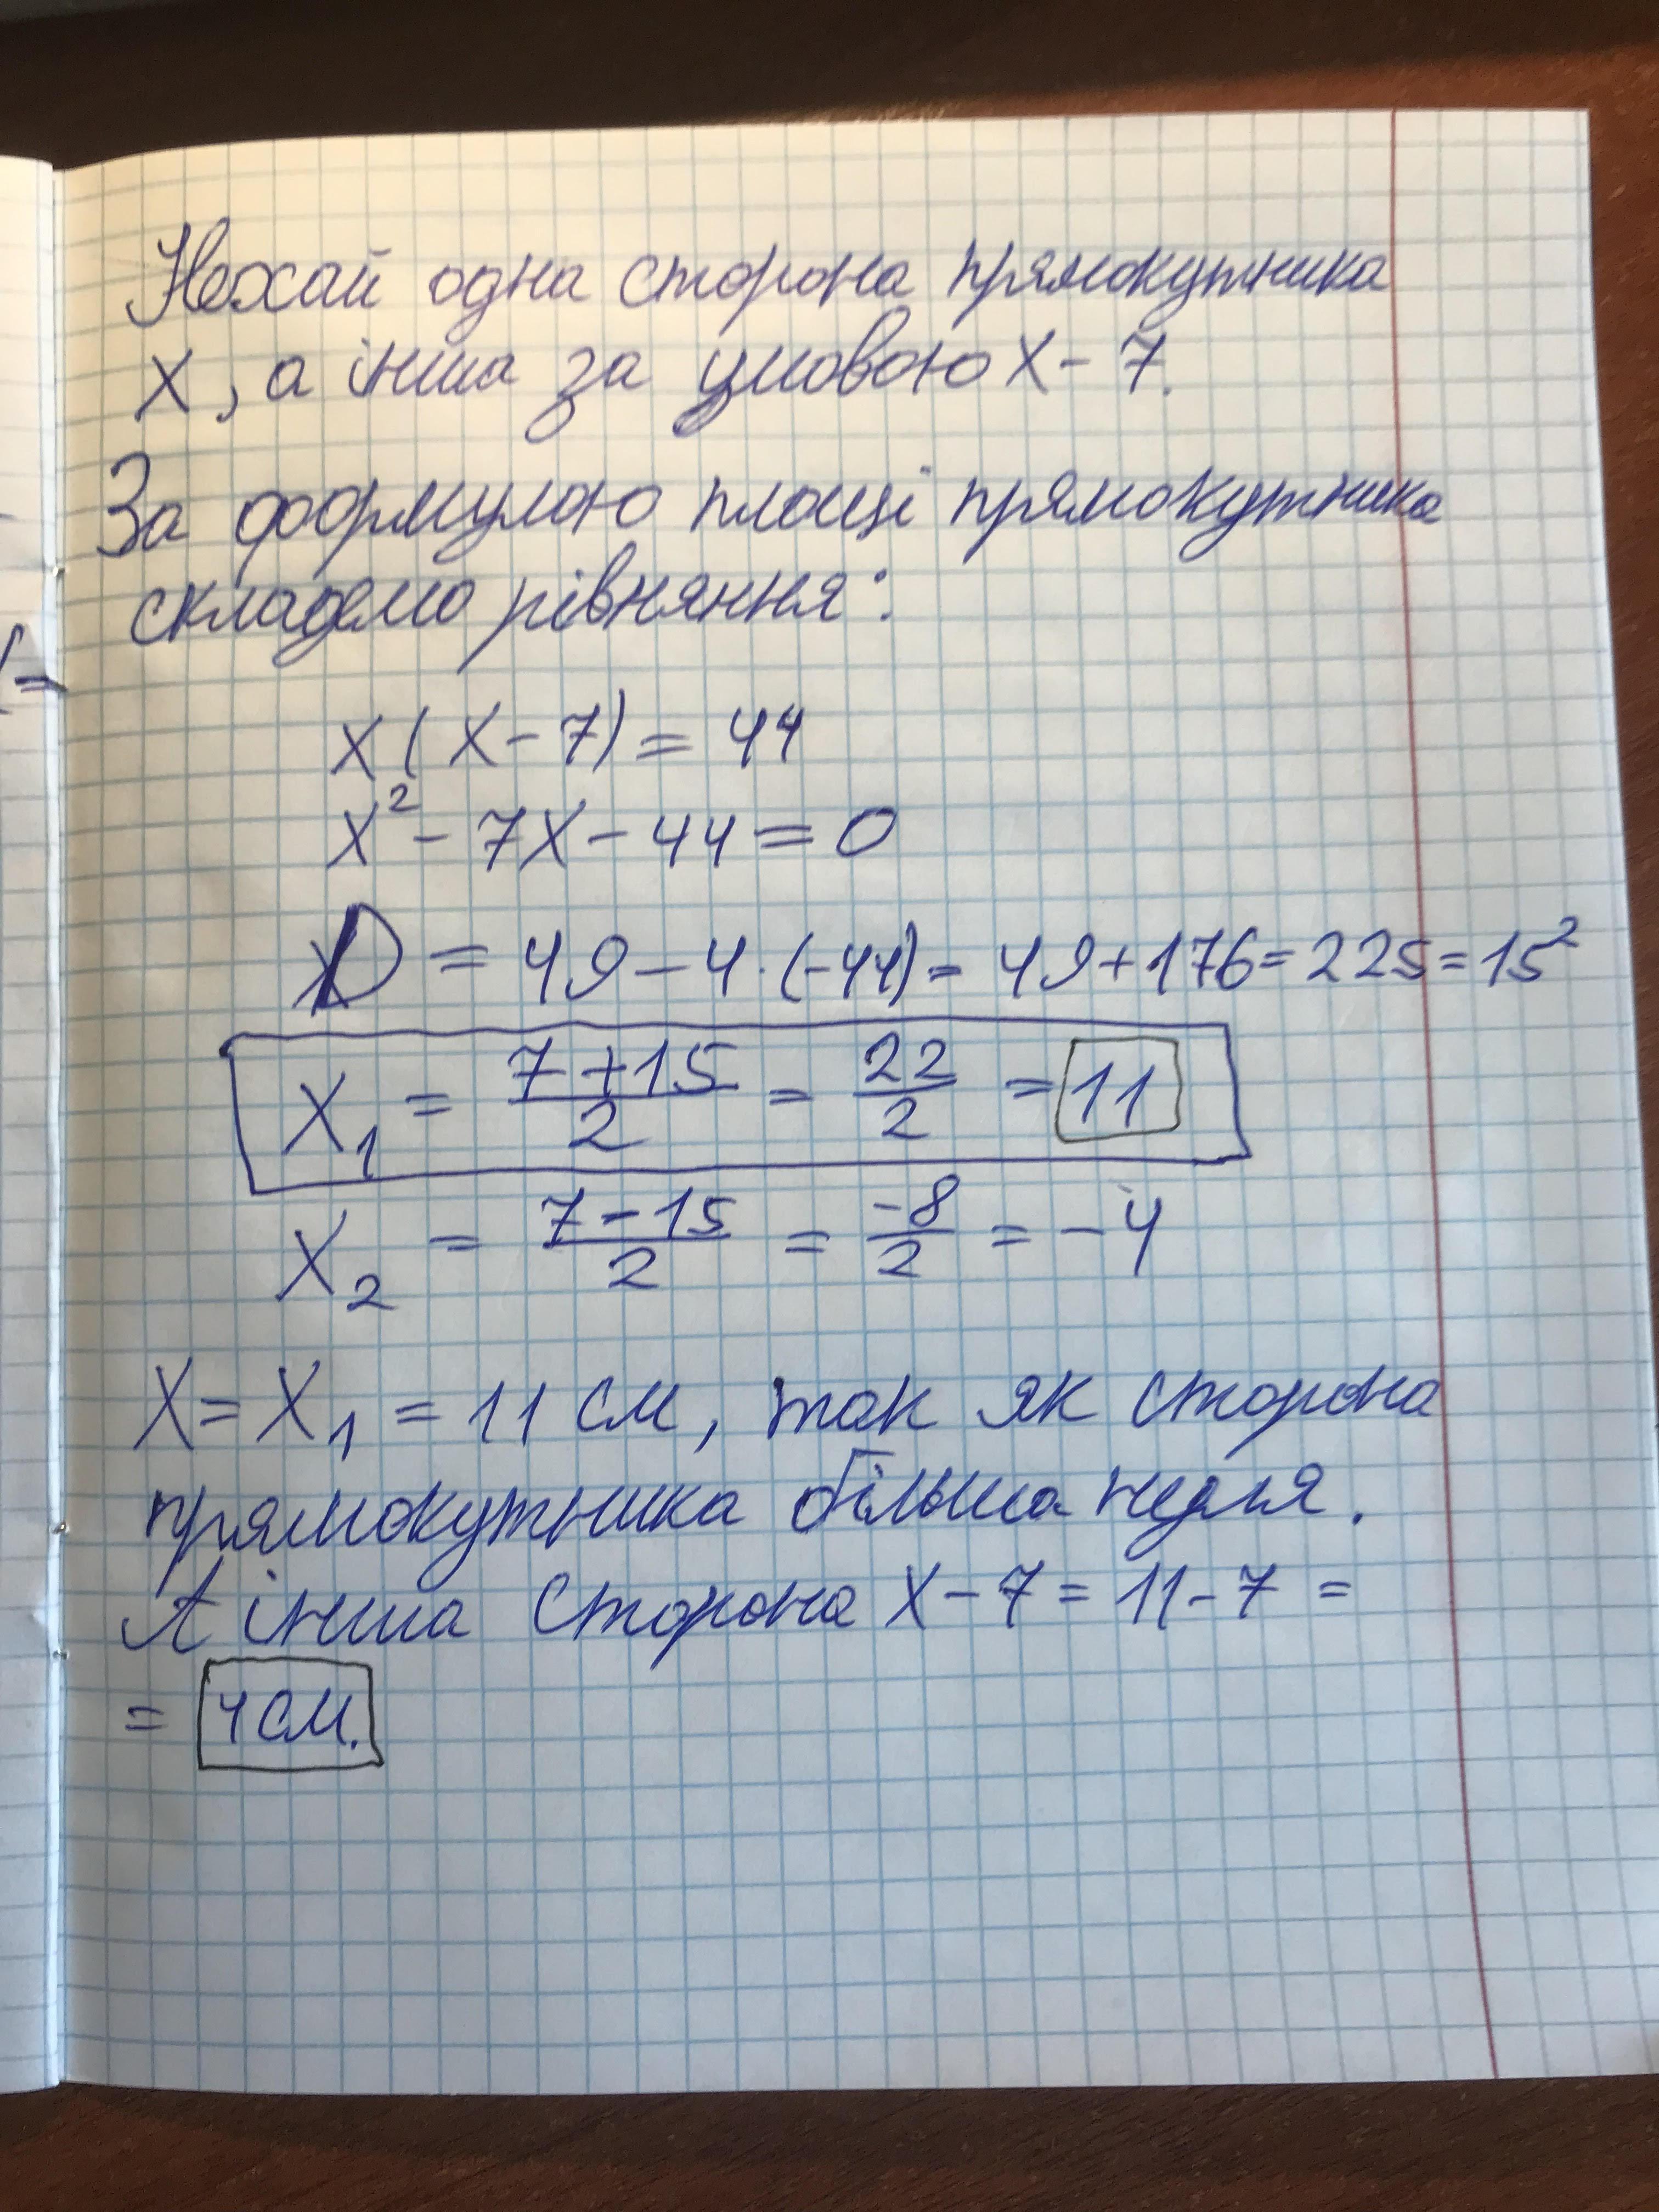 Нехай одна сторона прямокутника
x, а інша за умовою x - 7.
За формулою площі прямокутника
складемо рівняння:
x(x-7) = 44
x² - 7x - 44 = 0
D = 49 - 4·(-44) = 49+176=225=15²
x₁ = (7+15)/2 = 22/2 = 11
x₂ = (7-15)/2 = -8/2 = -4
x = x₁ = 11 см, так як сторона
прямокутника більша нуля.
А інша сторона x - 7 = 11 - 7 =
= 4 см.